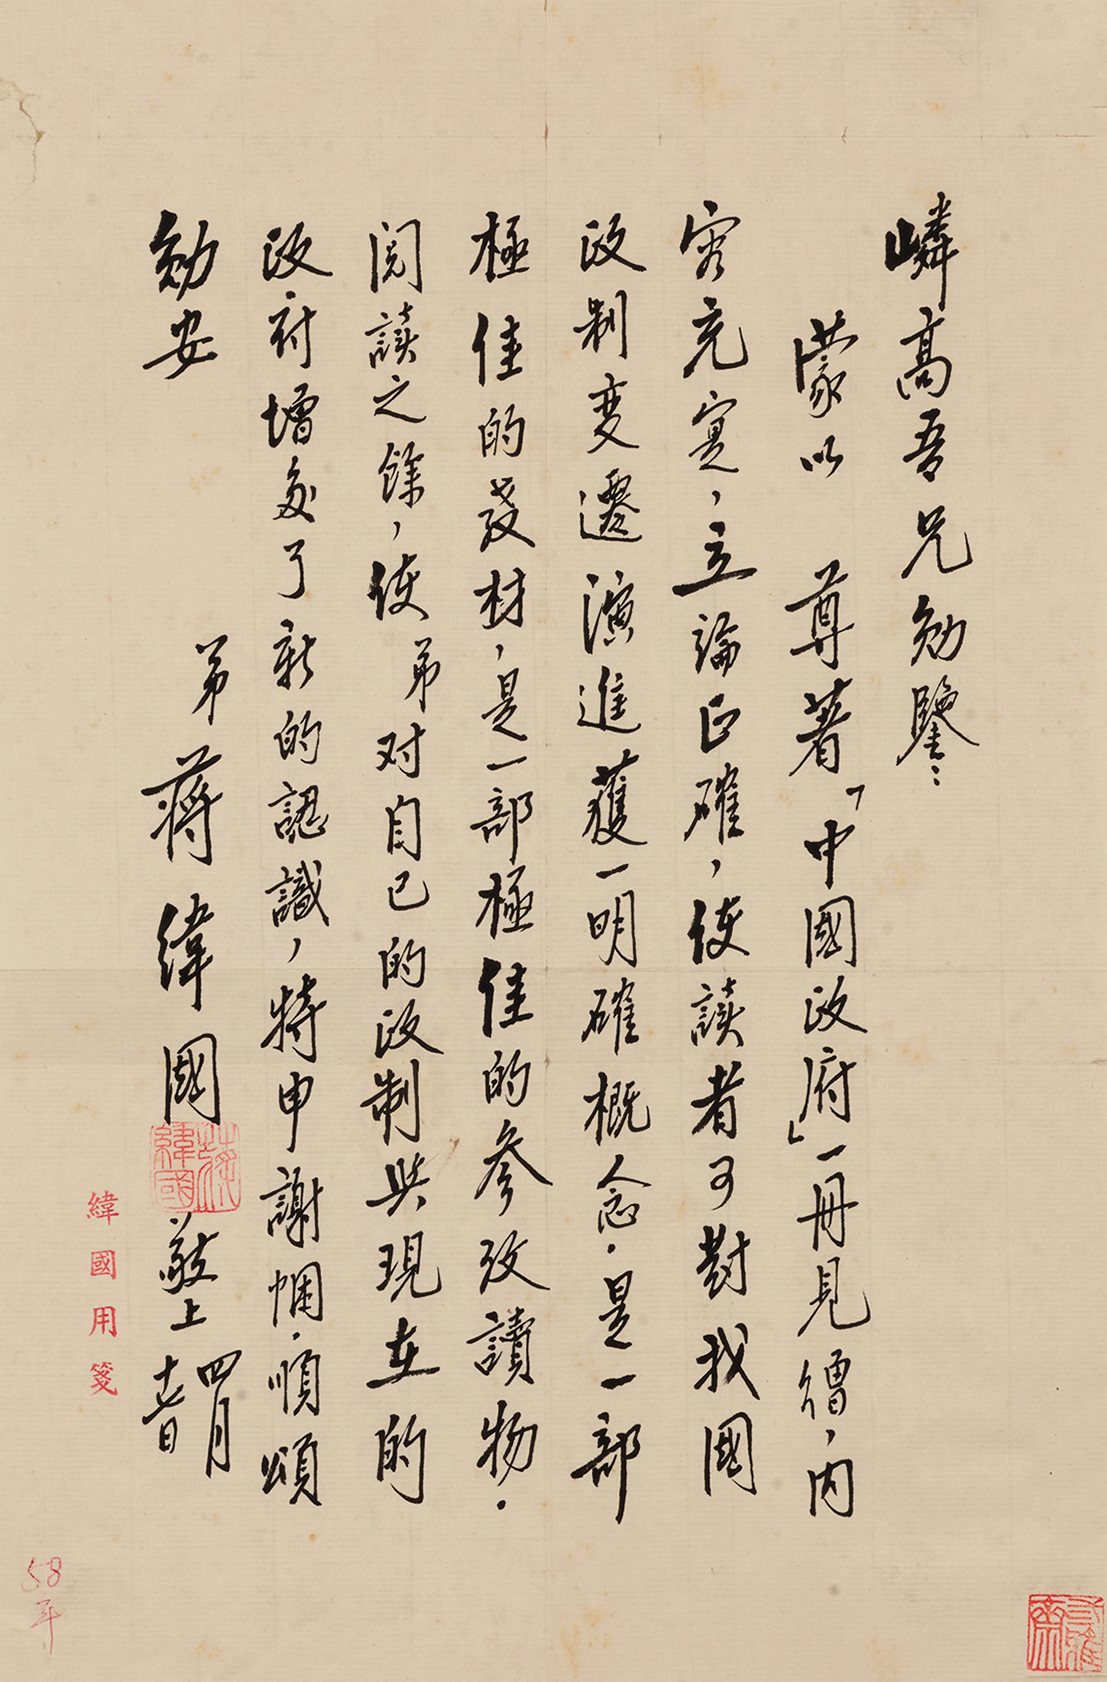 嶙高吾兄勛鑒：
蒙以　尊著「中國政府」一冊見贈，內
容充實，立論正確，使讀者可對我國
政制变遷演進獲一明確概念．是一部
極佳的教材，是一部極佳的參攷讀物．
閱讀之餘，使　弟对自己的政制與現在的
政府增多了新的認識，特申謝悃．順頌
勛安
弟　蔣緯國　敬上　四月十七日
蔣緯國
緯國用箋
58年